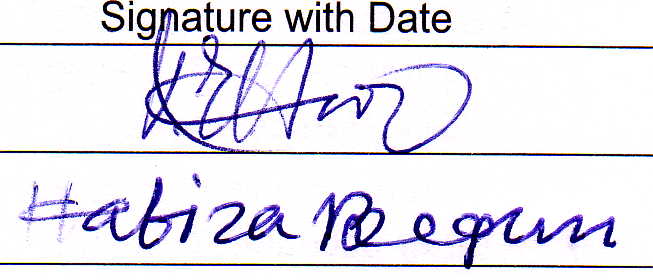 Signature with Date
Habiza Begum